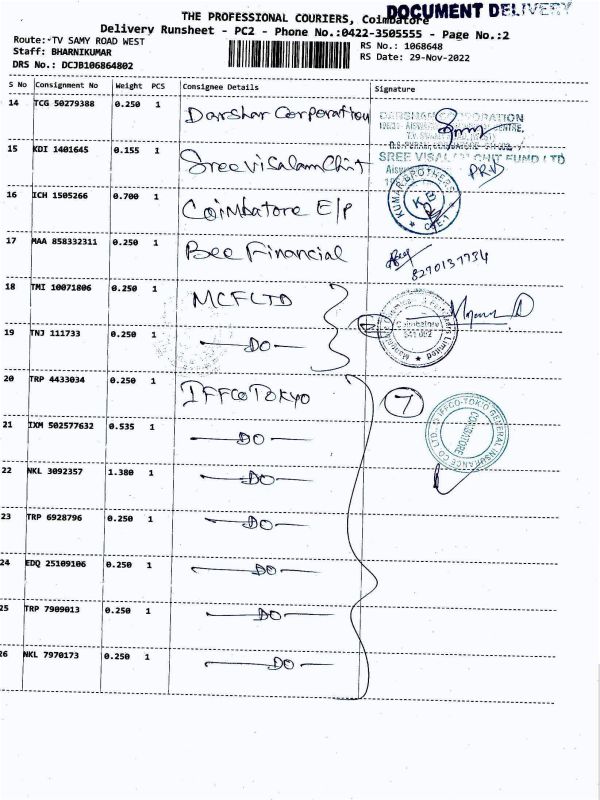 DOCUMENT DELIVERY
THE PROFESSIONAL COURIERS, Coimbatore
Delivery Runsheet - PC2 - Phone No.:0422-3505555 - Page No.:2
Route: TV SAMY ROAD WEST
RS No.: 1068648
Staff: BHARNIKUMAR
RS Date: 29-Nov-2022
DRS No.: DCJB106864802
S No Consignment No Weight PCS Consignee Details Signature
14 TCG 50279388 0.250 1 Darshar Corporation
DARSHAN CORPORATION
15 KDI 1401645 0.155 1 SreeVisalamChit
SREE VISALAM CHIT FUND LTD
PRVS
16 ICH 1505266 0.700 1 Coimbatore E/P
KUMAR BROTHERS
KB
CBE-1
17 MAA 858332311 0.250 1 Bee Financial
8270137734
18 TMI 10071806 0.250 1 MCFLTD
2
Coimbatore
641 002
Limited
19 TNJ 111733 0.250 1 DO
20 TRP 4433034 0.250 1 IFFCO TOKYO
7
IFFCO-TOKIO GENERAL INSURANCE CO LTD.
COIMBATORE
21 IXM 502577632 0.535 1 DO
22 NKL 3092357 1.380 1 DO
23 TRP 6928796 0.250 1 DO
24 EDQ 25109106 0.250 1 DO
25 TRP 7909013 0.250 1 DO
26 NKL 7970173 0.250 1 DO